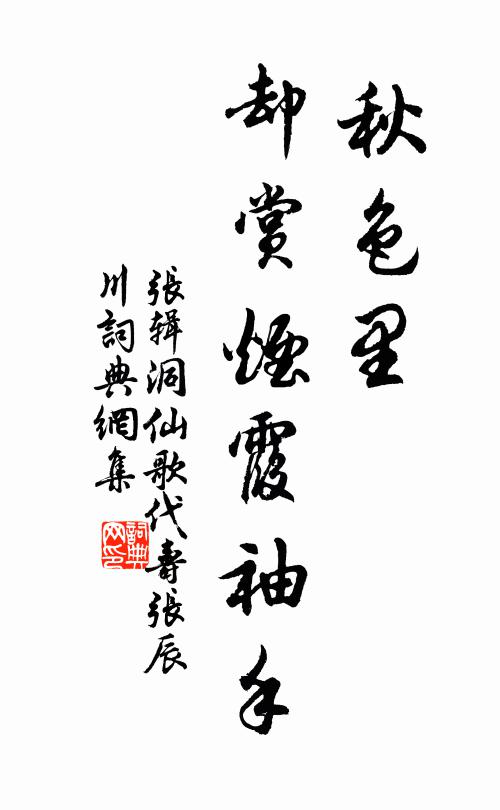 秋色里
却赏煙霞袖手
張辑洞仙歌代壽張辰
川詞典網集
詞典网印